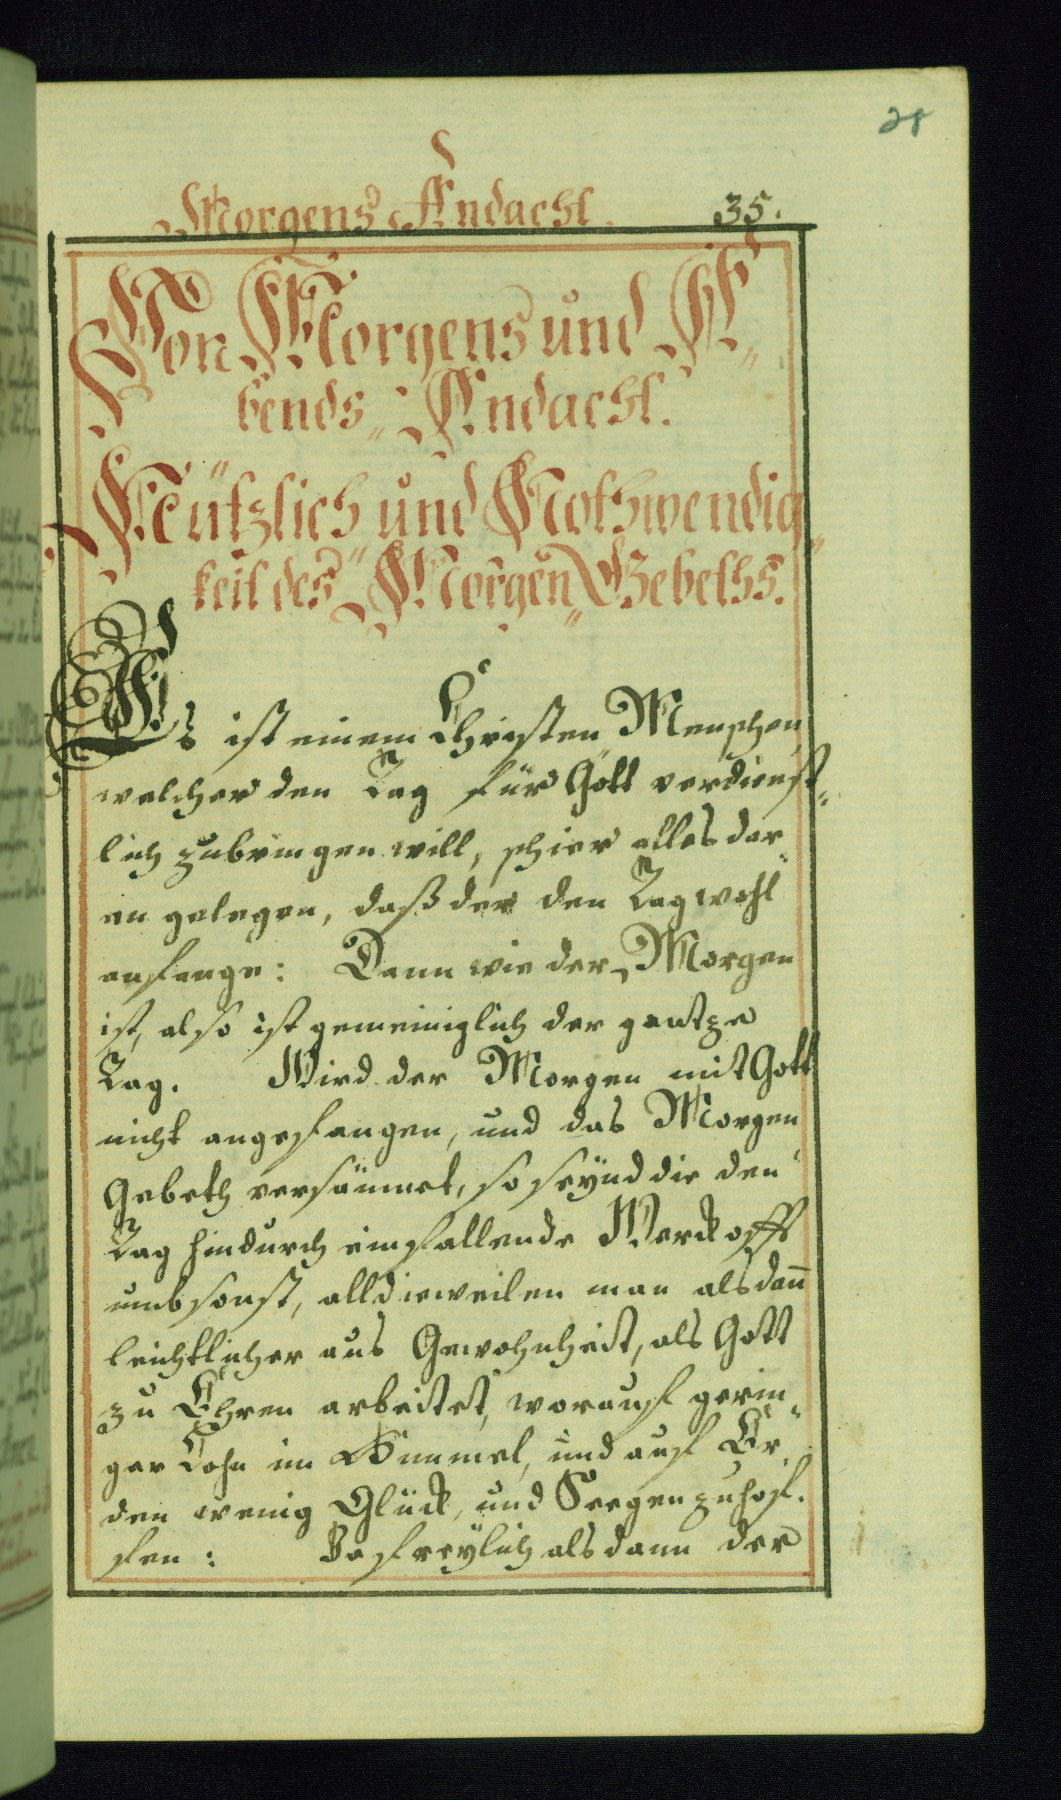 28
Morgens Andacht. 35.
Von Morgens und A„
bends„ Andacht.
Nützlich und Nothwendig„
keit des Morgen„Gebeths.
Es ist einem Christen Menschen
welcher den Tag für Gott verdienst„
lich zubringen will, schier alles dar„
an gelegen, daß der den Tag wohl
anfange: Dann wie der Morgen
ist, also ist gemeiniglich der gantze
Tag. Wird der Morgen mit Gott
nicht angefangen, und das Morgen
Gebeth versäumet, so seynd die den
Tag hindurch einfallende Werck offt
umbsonst, alldieweilen man alsdan̄
leichtlicher aus Gewohnheit, als Gott
zu Ehren arbeitet, worauf gerin„
ger Lohn im Himmel, und auf Er„
den wenig Glück, und Seegen zuhof„
fen: Da freylich als dann der